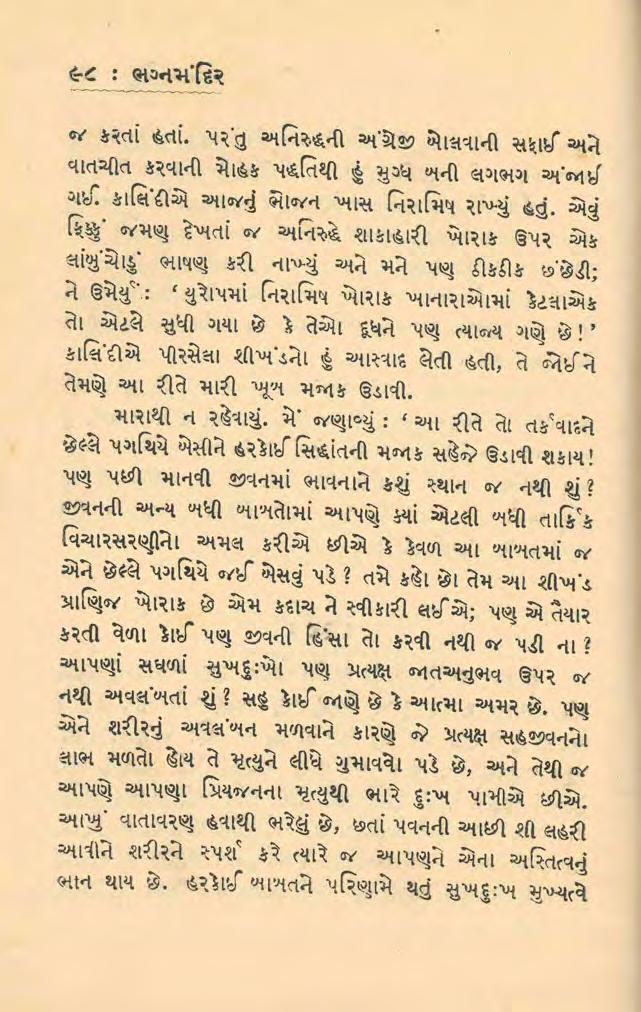 ૯૮ : ભગ્નમંદિર
જ કરતાં હતાં. પરંતુ અનિરુદ્ધની અંગ્રેજી બોલવાની સફાઈ અને
વાતચીત કરવાની મોહક પદ્ધતિથી હું મુગ્ધ બની લગભગ અંજાઈ
ગઈ. કાલિંદીએ આજનું ભોજન ખાસ નિરામિષ રાખ્યું હતું. એવું
ફિક્કું જમણ દેખતાં જ અનિરુદ્ધે શાકાહારી ખોરાક ઉપર એક
લાંબુંચોડું ભાષણ કરી નાખ્યું અને મને પણ ઠીકઠીક છંછેડી;
ને ઉમેર્યું : ‘ યુરોપમાં નિરામિષ ખોરાક ખાનારાઓમાં કેટલાએક
તો એટલે સુધી ગયા છે કે તેઓ દૂધને પણ ત્યાજ્ય ગણે છે!’
કાલિંદીએ પીરસેલા શીખંડનો હું આસ્વાદ લેતી હતી, તે જોઈને
તેમણે આ રીતે મારી ખૂબ મજાક ઉડાવી.
મારાથી ન રહેવાયું. મેં જણાવ્યું : ‘ આ રીતે તો તર્કવાદને
છેલ્લે પગથિયે બેસીને હરકોઈ સિદ્ધાંતની મજાક સહેજે ઉડાવી શકાય!
પણ પછી માનવી જીવનમાં ભાવનાને કશું સ્થાન જ નથી શું?
જીવનની અન્ય બધી બાબતોમાં આપણે ક્યાં એટલી બધી તાર્કિક
વિચારસરણીનો અમલ કરીએ છીએ કે કેવળ આ બાબતમાં જ
એને છેલ્લે પગથિયે જઈ બેસવું પડે? તમે કહો છો તેમ આ શીખંડ
પ્રાણિજ ખોરાક છે એમ કદાચ ને સ્વીકારી લઈએ; પણ એ તૈયાર
કરતી વેળા કોઈ પણ જીવની હિંસા તો કરવી નથી જ પડી ના?
આપણાં સઘળાં સુખદુઃખો પણ પ્રત્યક્ષ જાતઅનુભવ ઉપર જ
નથી અવલંબતાં શું? સહુ કોઈ જાણે છે કે આત્મા અમર છે. પણ
એને શરીરનું અવલંબન મળવાને કારણે જે પ્રત્યક્ષ સહજીવનનો
લાભ મળતો હોય તે મૃત્યુને લીધે ગુમાવવો પડે છે, અને તેથી જ
આપણે આપણા પ્રિયજનના મૃત્યુથી ભારે દુઃખ પામીએ છીએ.
આખું વાતાવરણ હવાથી ભરેલું છે, છતાં પવનની આછી શી લહરી
આવીને શરીરને સ્પર્શ કરે ત્યારે જ આપણને એના અસ્તિત્વનું
ભાન થાય છે. હરકોઈ બાબતને પરિણામે થતું સુખદુઃખ મુખ્યત્વે